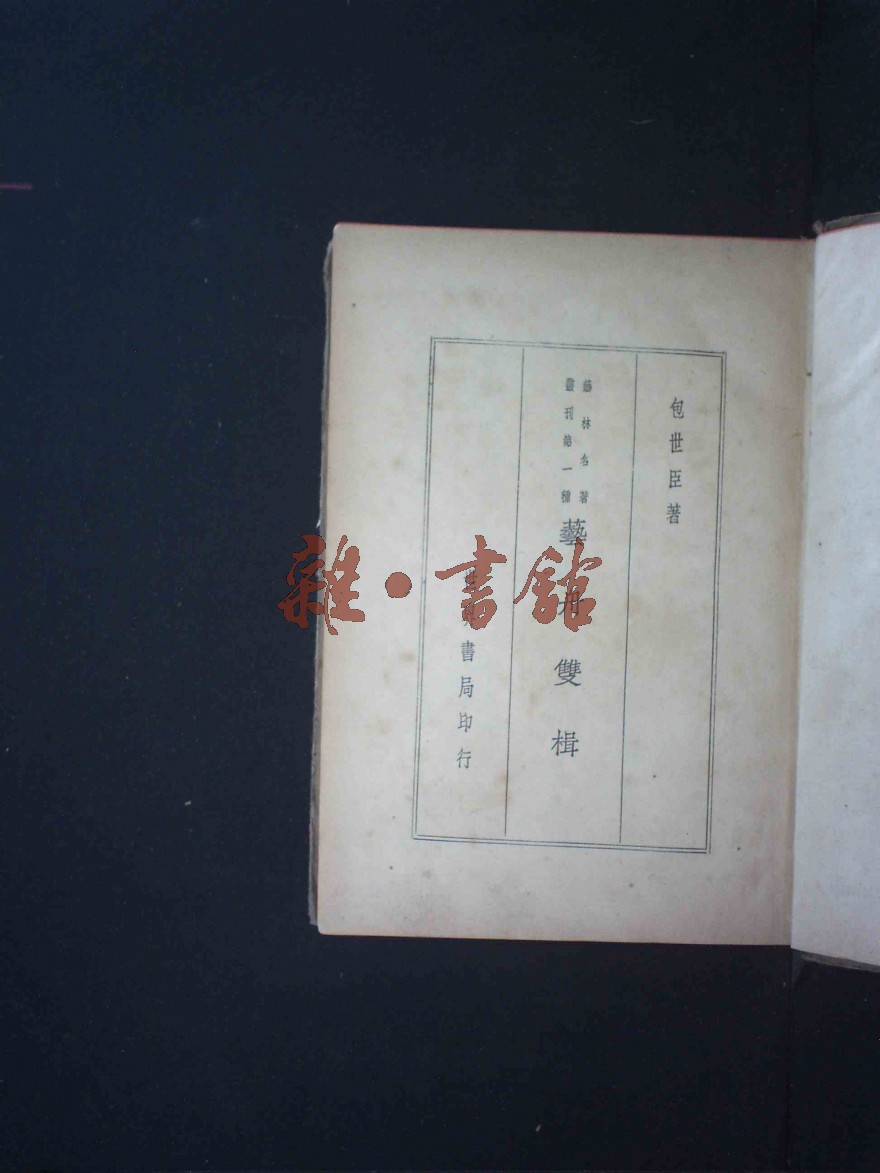 包世臣著
藝林名著
叢刊第一種
藝舟雙楫
書局印行
雜·書館